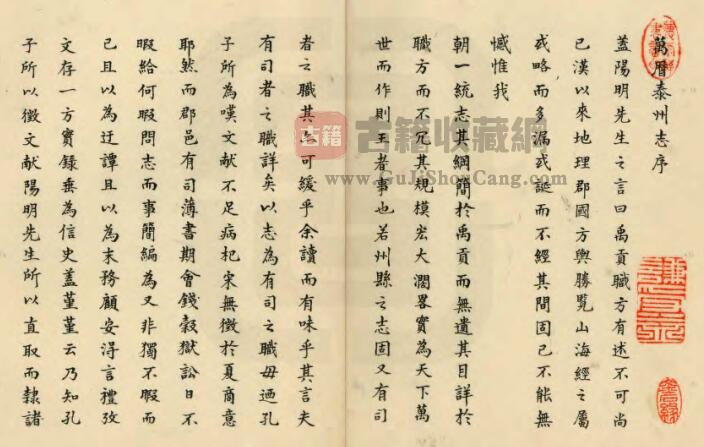 萬曆泰州志序
蓋陽明先生之言曰禹貢職方有述不可尚
已漢以來地理郡國方輿勝覽山海經之屬
或略而多漏或誕而不經其間固已不能無
憾惟我
朝一統志其綱簡於禹貢而無遺其目詳於
職方而不冗其規模宏大濶畧實為天下萬
世而作則王者事也若州縣之志固又有司
者之職其亦可緩乎余讀而有味乎其言夫
有司者之職詳矣以志為有司之職毋迺孔
子所為嘆文献不足病杞宋無徵於夏商意
耶然而郡邑有司薄書期會錢穀獄訟日不
暇給何暇問志而事簡編為又非獨不暇而
已且以為迂譚且以為末務顧安淂言禮攷
文存一方實録垂為信史蓋堇堇云乃知孔
子所以徵文献陽明先生所以直取而隸諸
古籍
古籍收藏網
www.GuJiShouCang.com